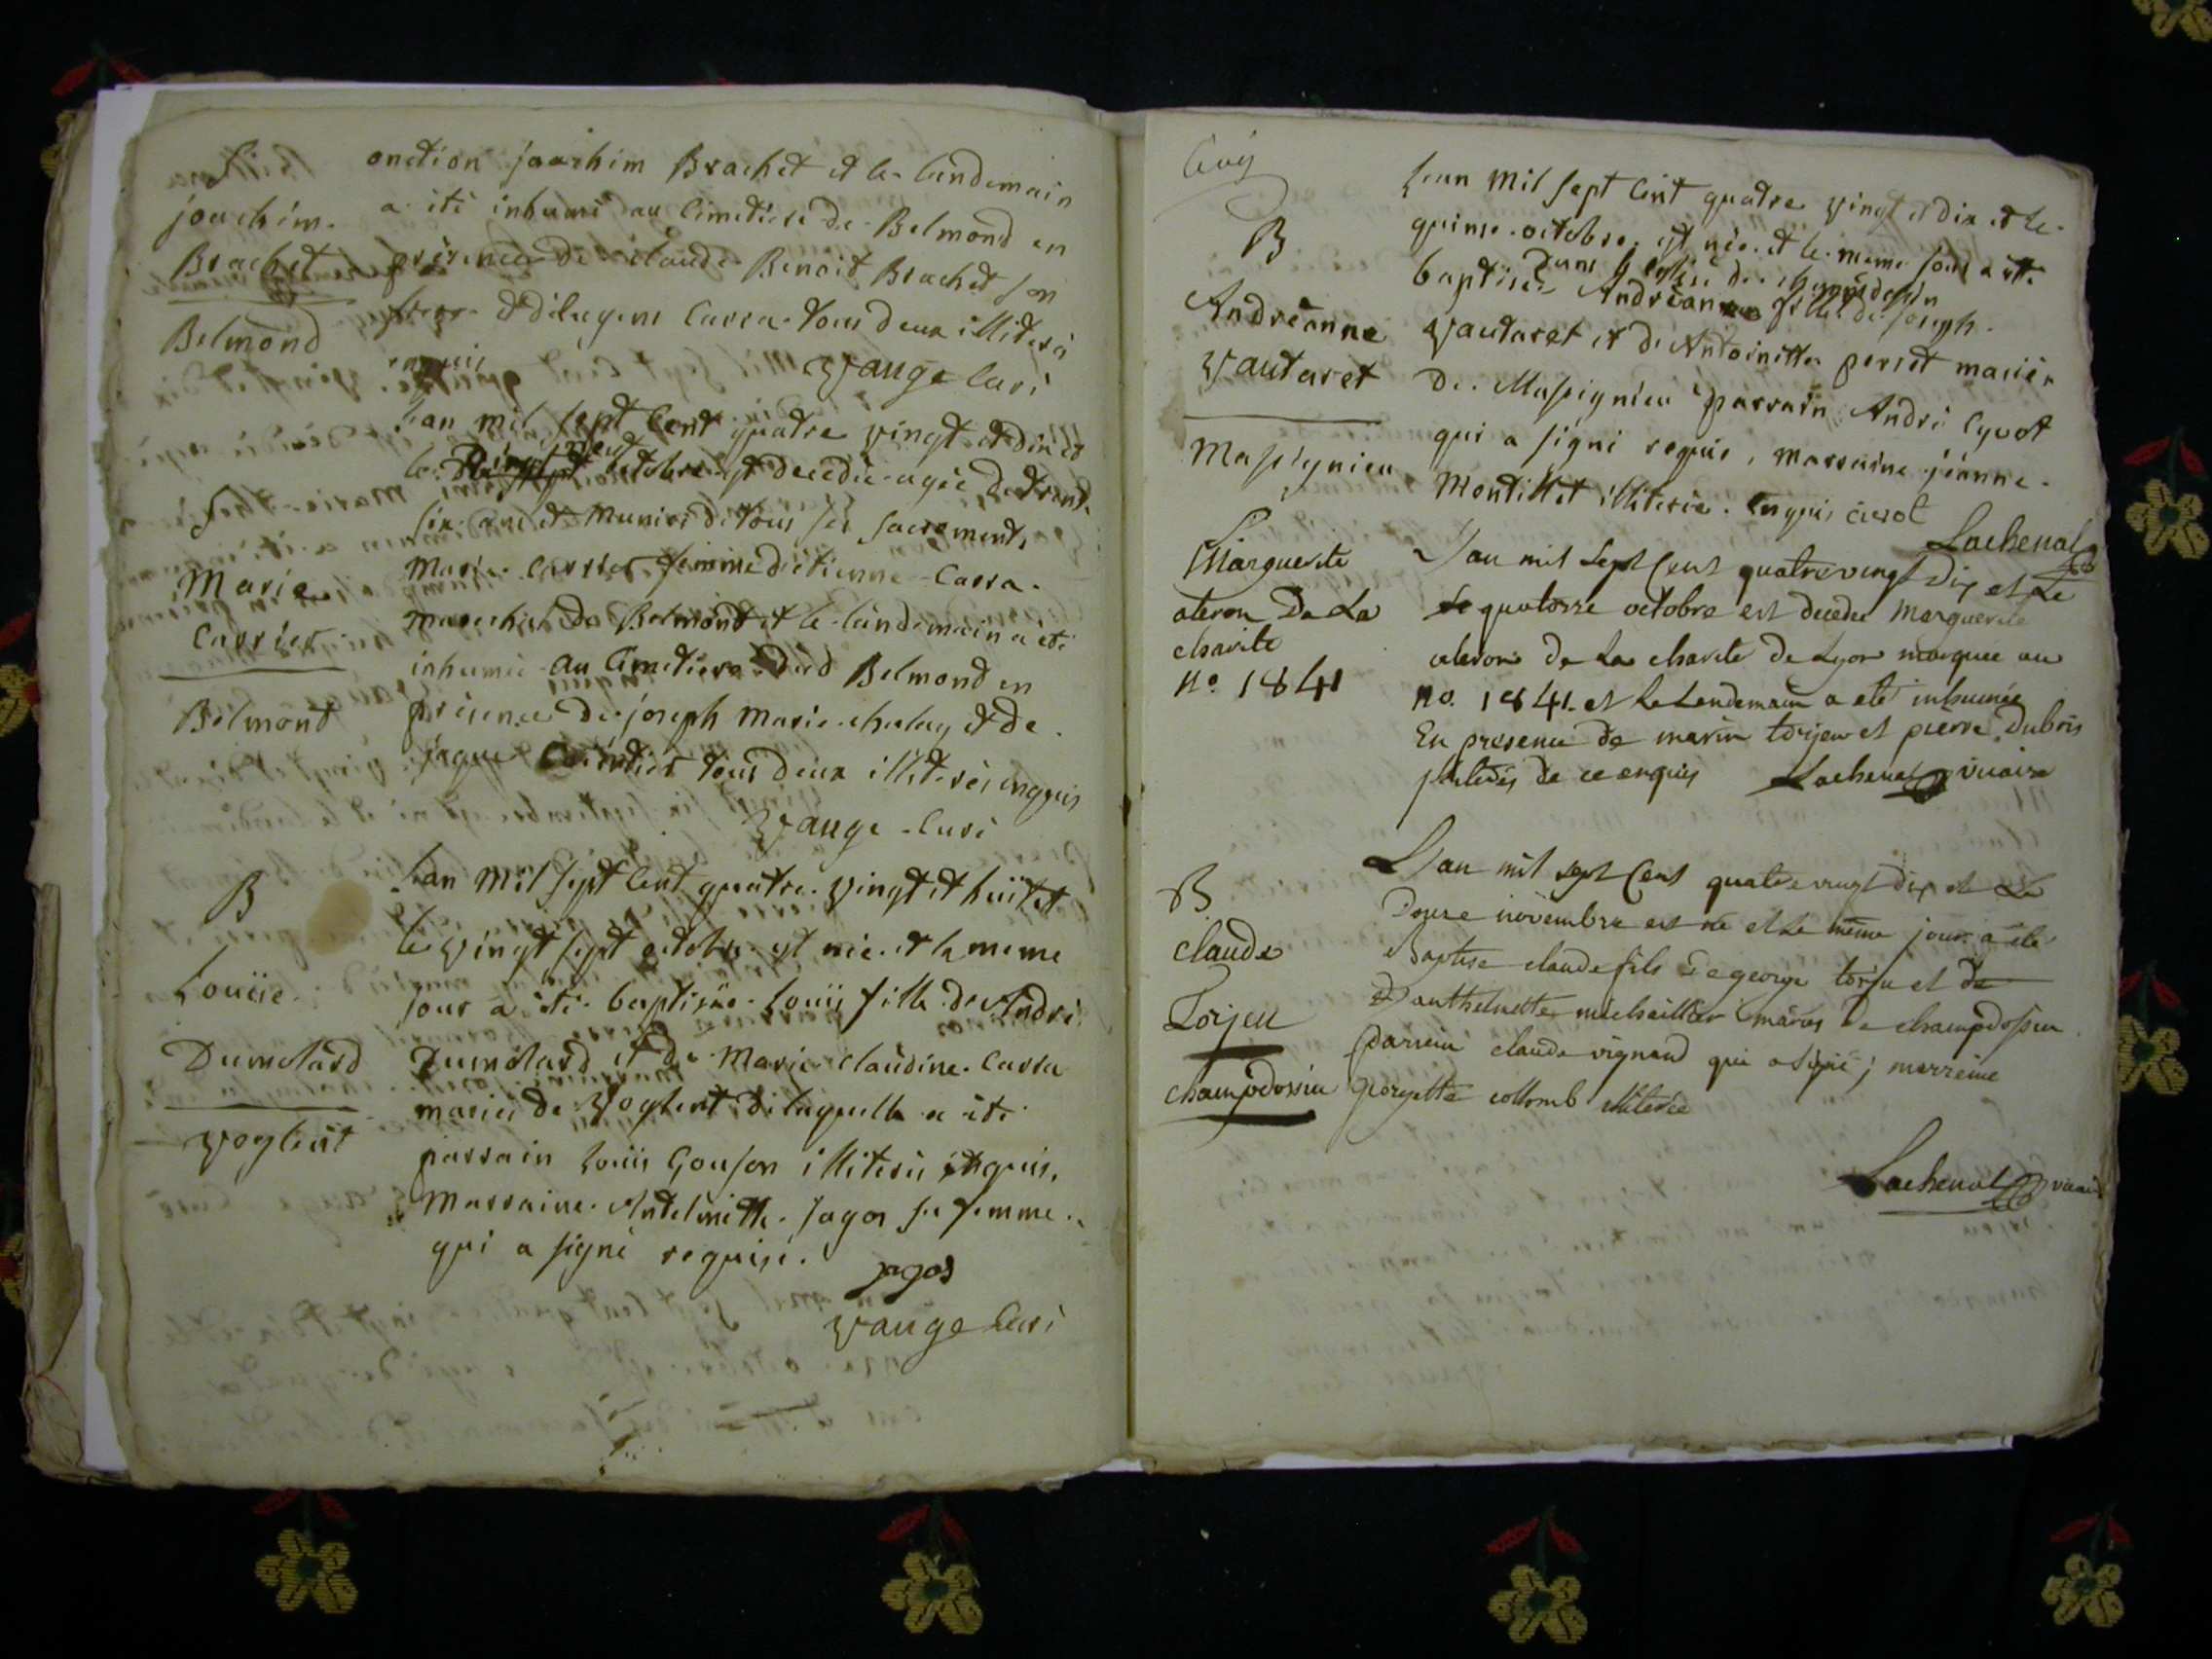 S
joachim
Brachet
Belmond
onction joachim Brachet et le lendemain
a été inhumé au Cimetiere de Belmond en
présence de claude Benoit Brachet son
frere et dilayens Carra tous deux illiterés
enquis Vauge Curé
S
Marie
Carrier
Belmont
L'an mil sept Cent quatre vingt et dix et
le neuf octobre est decedée agée de trente
six ans et munies de tous ses sacrements
Marie Carrier femme d'etienne Carra
marechal de Belmont et le lendemain a été
inhumée au Cimetiere dud Belmond en
présence de joseph Marie chalay et de
jaque tous deux illiterés enquis
Vauge Curé
B
Louise
Dumolard
Voglent
L'an Mil sept Cent quatre vingt et huit et
le vingt sept octobre est née et le meme
jour a été baptisée Louise fille de André
Dumolard et de Marie claudine Carra
mariés de Voglent de laquelle a été
parrain Louis Gouson illiteré enquis,
Marraine Antelmette Jagos sa femme
qui a signé requise.
jagos
Vauge Curé
B
Andréanne
Vautaret
Massignieu
L'an Mil sept Cent quatre vingt et dix et le
quinse octobre est née et le meme jour a été
dans l'eglise de champdosin
baptisée Andréanne fille de joseph
Vautaret et de Antoinette perret mariés
de Massignieu parrain André Cyvot
qui a signé requis, marraine jeanne
Montillet illiterée enquis civot
Lachenal
S
Marguerite
oleron De La
charite
No. 1841
L'an mil sept Cent quatrevingt Dix et Le
Le quatorze octobre est decedee Marguerite
oleron de La charité de Lyon marquee au
No. 1841. et Le Lendemain a eté inhumée
En presence de marin torjeu et pierre Dubois
illiterés de ce enquis Lachenal vicaire
B
claude
Torjeu
champdossin
L'an mil sept Cent quatrevingt Dix et Le
Douze novembre est né et Le même jour a été
Baptise claude fils de george torju et de
D'anthelmette michaillier mariés de champdossin
parrein claude vignand qui a signé; marreine
georgette collomb illiterée
Lachenal vicaire